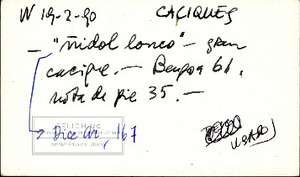 W 19-2-90 CACIQUES
— "ñidol lonco" — gran
cacique. — Bengoa 61,
nota de pie 35. —
Dice Ar, 167
USADO